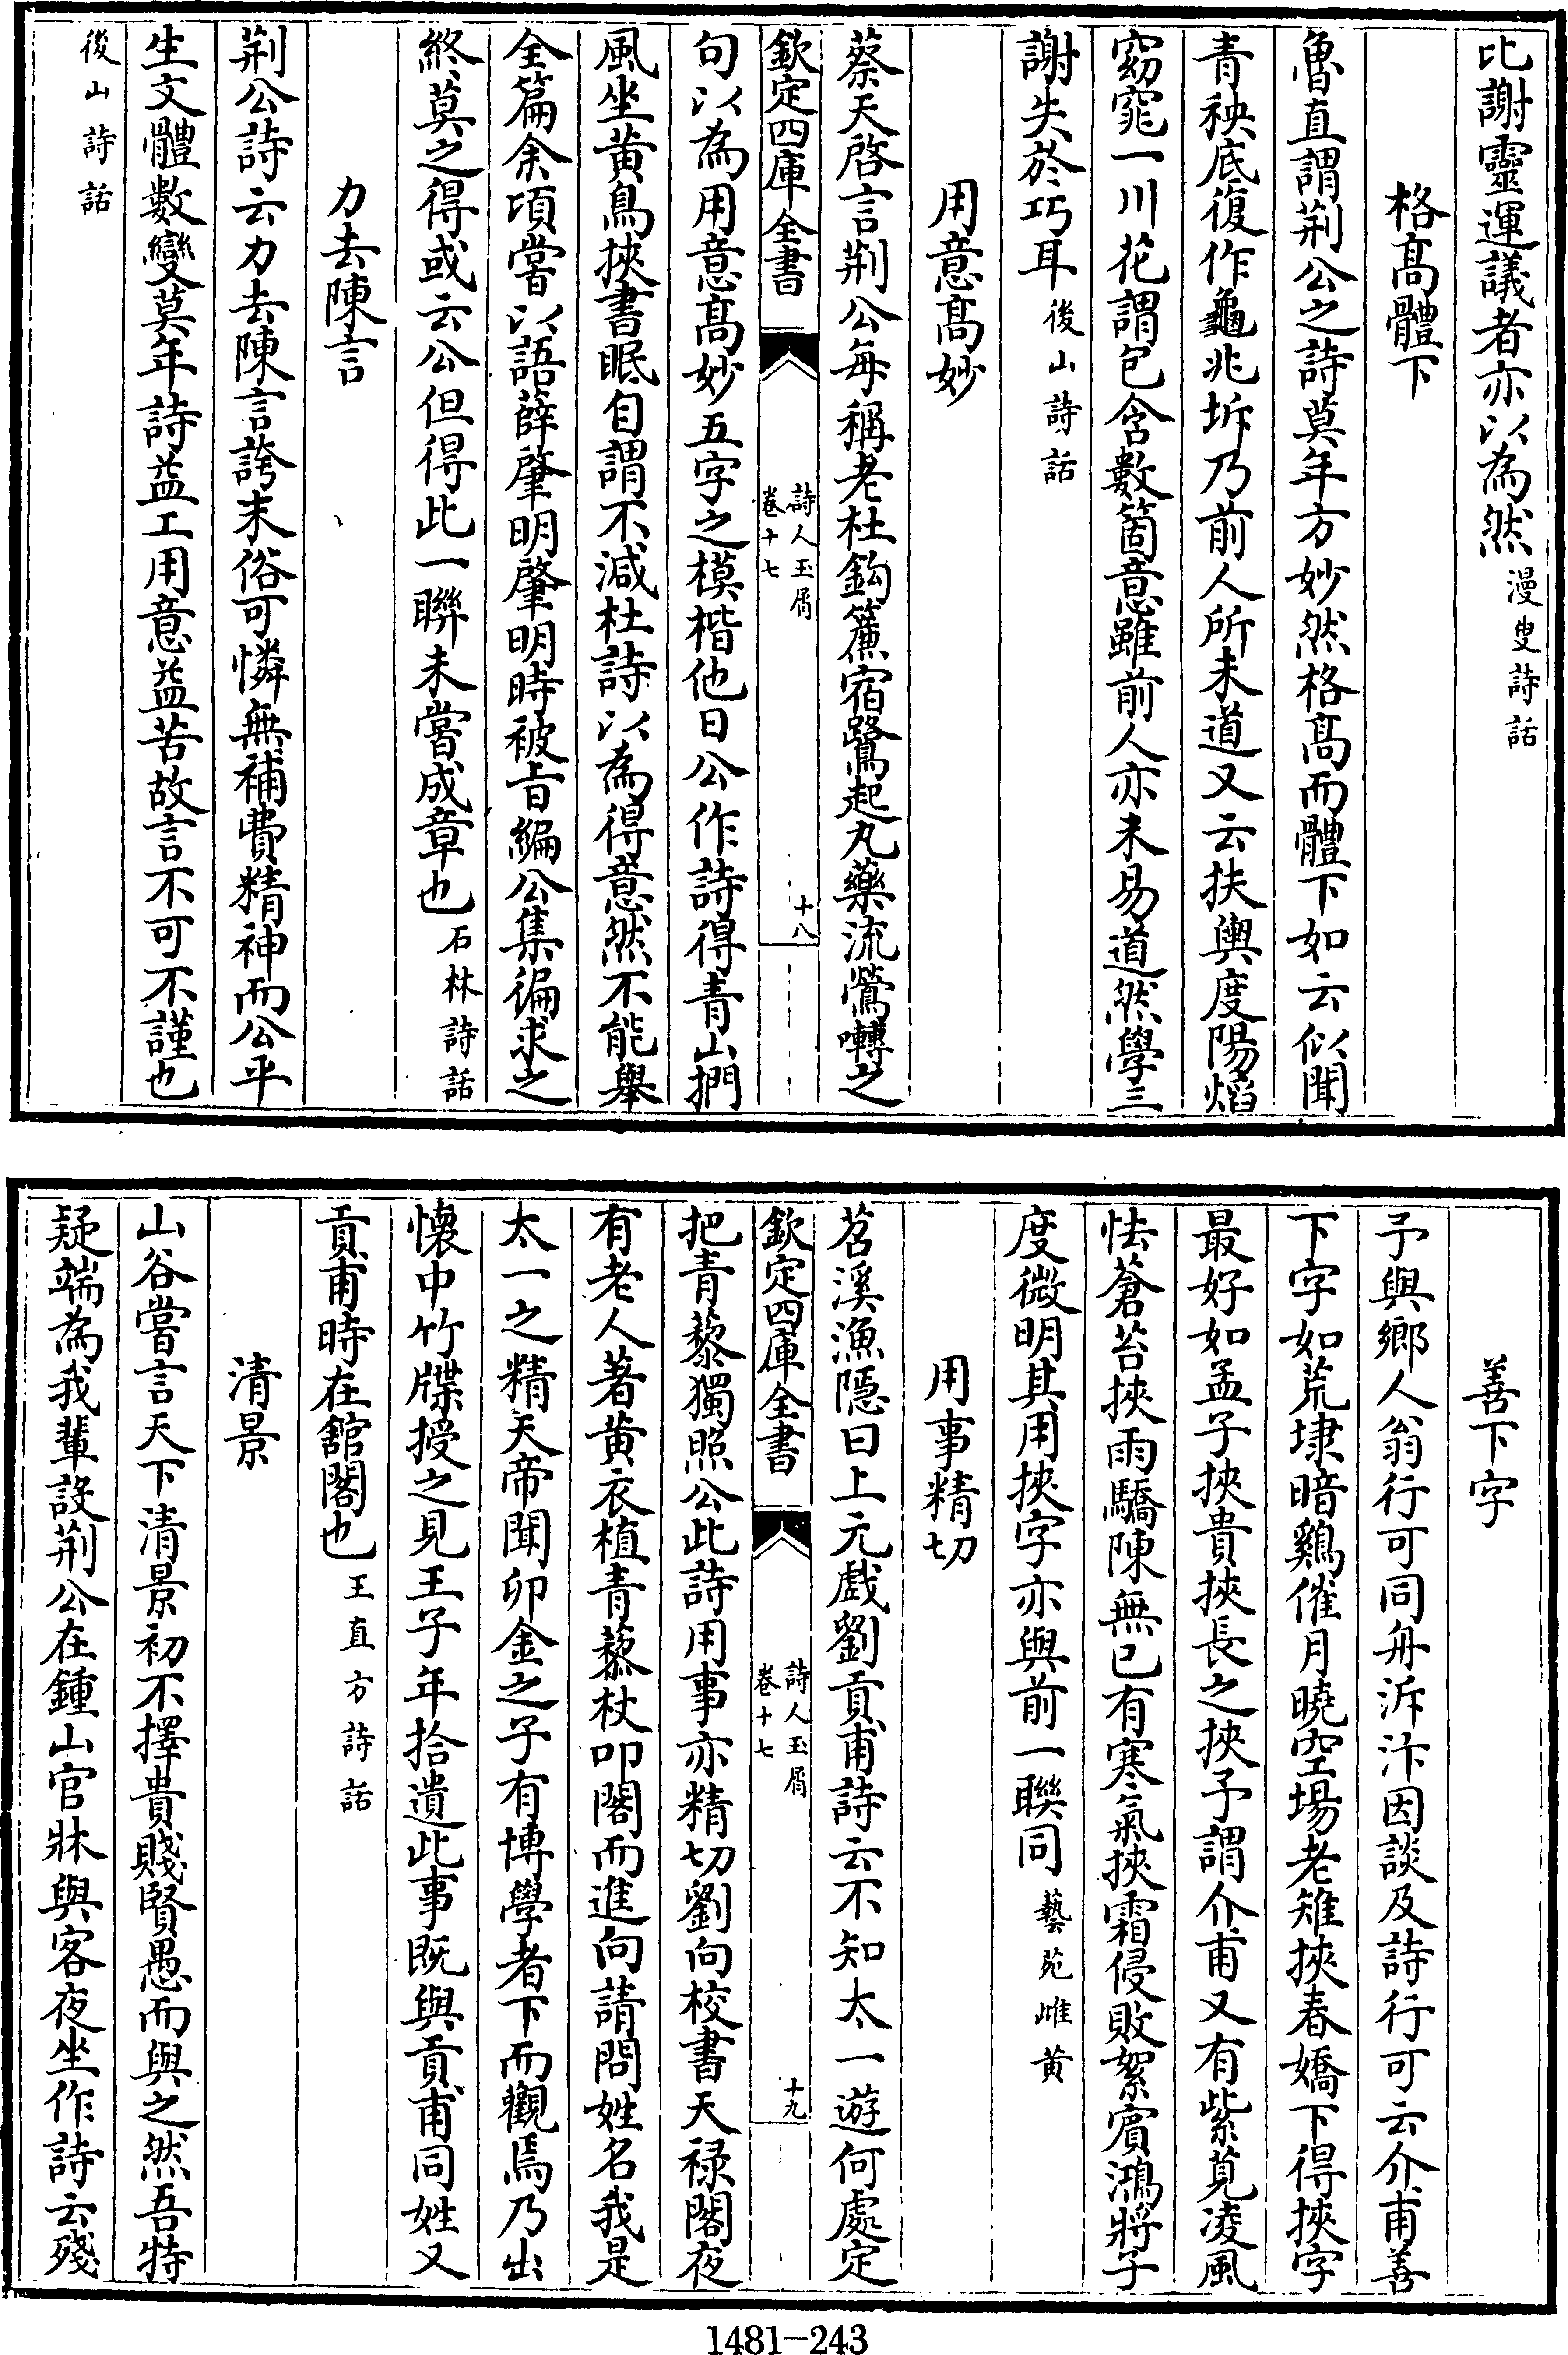 比謝靈運議者亦以為然漫叟詩話
格髙體下
魯直謂荆公之詩莫年方妙然格髙而體下如云似聞
青秧底復作龜兆坼乃前人所未道又云扶輿度陽焰
窈窕一川花謂包含數箇意雖前人亦未易道然學三
謝失於巧耳後山詩話
用意髙妙
蔡天啓言荆公每稱老杜鈎簾宿鷺起丸藥流鶯囀之
欽定四庫全書
詩人玉屑
卷十七
十八
句以為用意髙妙五字之模楷他日公作詩得青山捫
風坐黄鳥挾書眠自謂不減杜詩以為得意然不能舉
全篇余頃嘗以語薛肇明肇明時被旨編公集徧求之
終莫之得或云公但得此一聯未嘗成章也石林詩話
力去陳言
荆公詩云力去陳言誇末俗可憐無補費精神而公平
生文體數變莫年詩益工用意益苦故言不可不謹也
後山詩話
善下字
予與鄉人翁行可同舟泝汴因談及詩行可云介甫善
下字如荒埭暗鷄催月曉空場老雉挾春嬌下得挾字
最好如孟子挾貴挾長之挾予謂介甫又有紫莧凌風
怯蒼苔挾雨驕陳無已有寒氣挾霜侵敗絮賓鴻將子
度微明其用挾字亦與前一聯同藝苑雌黄
用事精切
苕溪漁隱曰上元戲劉貢甫詩云不知太一遊何處定
欽定四庫全書
詩人玉屑
卷十七
十九
把青藜獨照公此詩用事亦精切劉向校書天禄閣夜
有老人著黄衣植青藜杖叩閣而進向請問姓名我是
太一之精天帝聞卯金之子有博學者下而觀焉乃出
懷中竹牒授之見王子年拾遺此事既與貢甫同姓又
貢甫時在舘閣也王直方詩話
清景
山谷嘗言天下清景初不擇貴賤賢愚而與之然吾特
疑端為我輩設荆公在鍾山官牀與客夜坐作詩云殘
1481-243